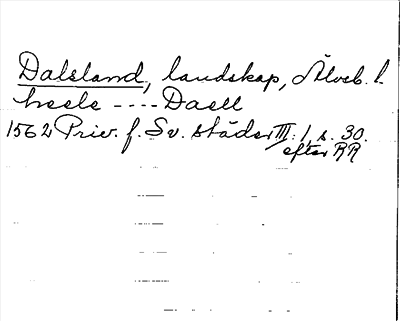 Dalsland, landskap, Älvsb. l.
heele ---- Daell
1562 Priv. f. Sv. städer III:1, s. 30.
efter RR